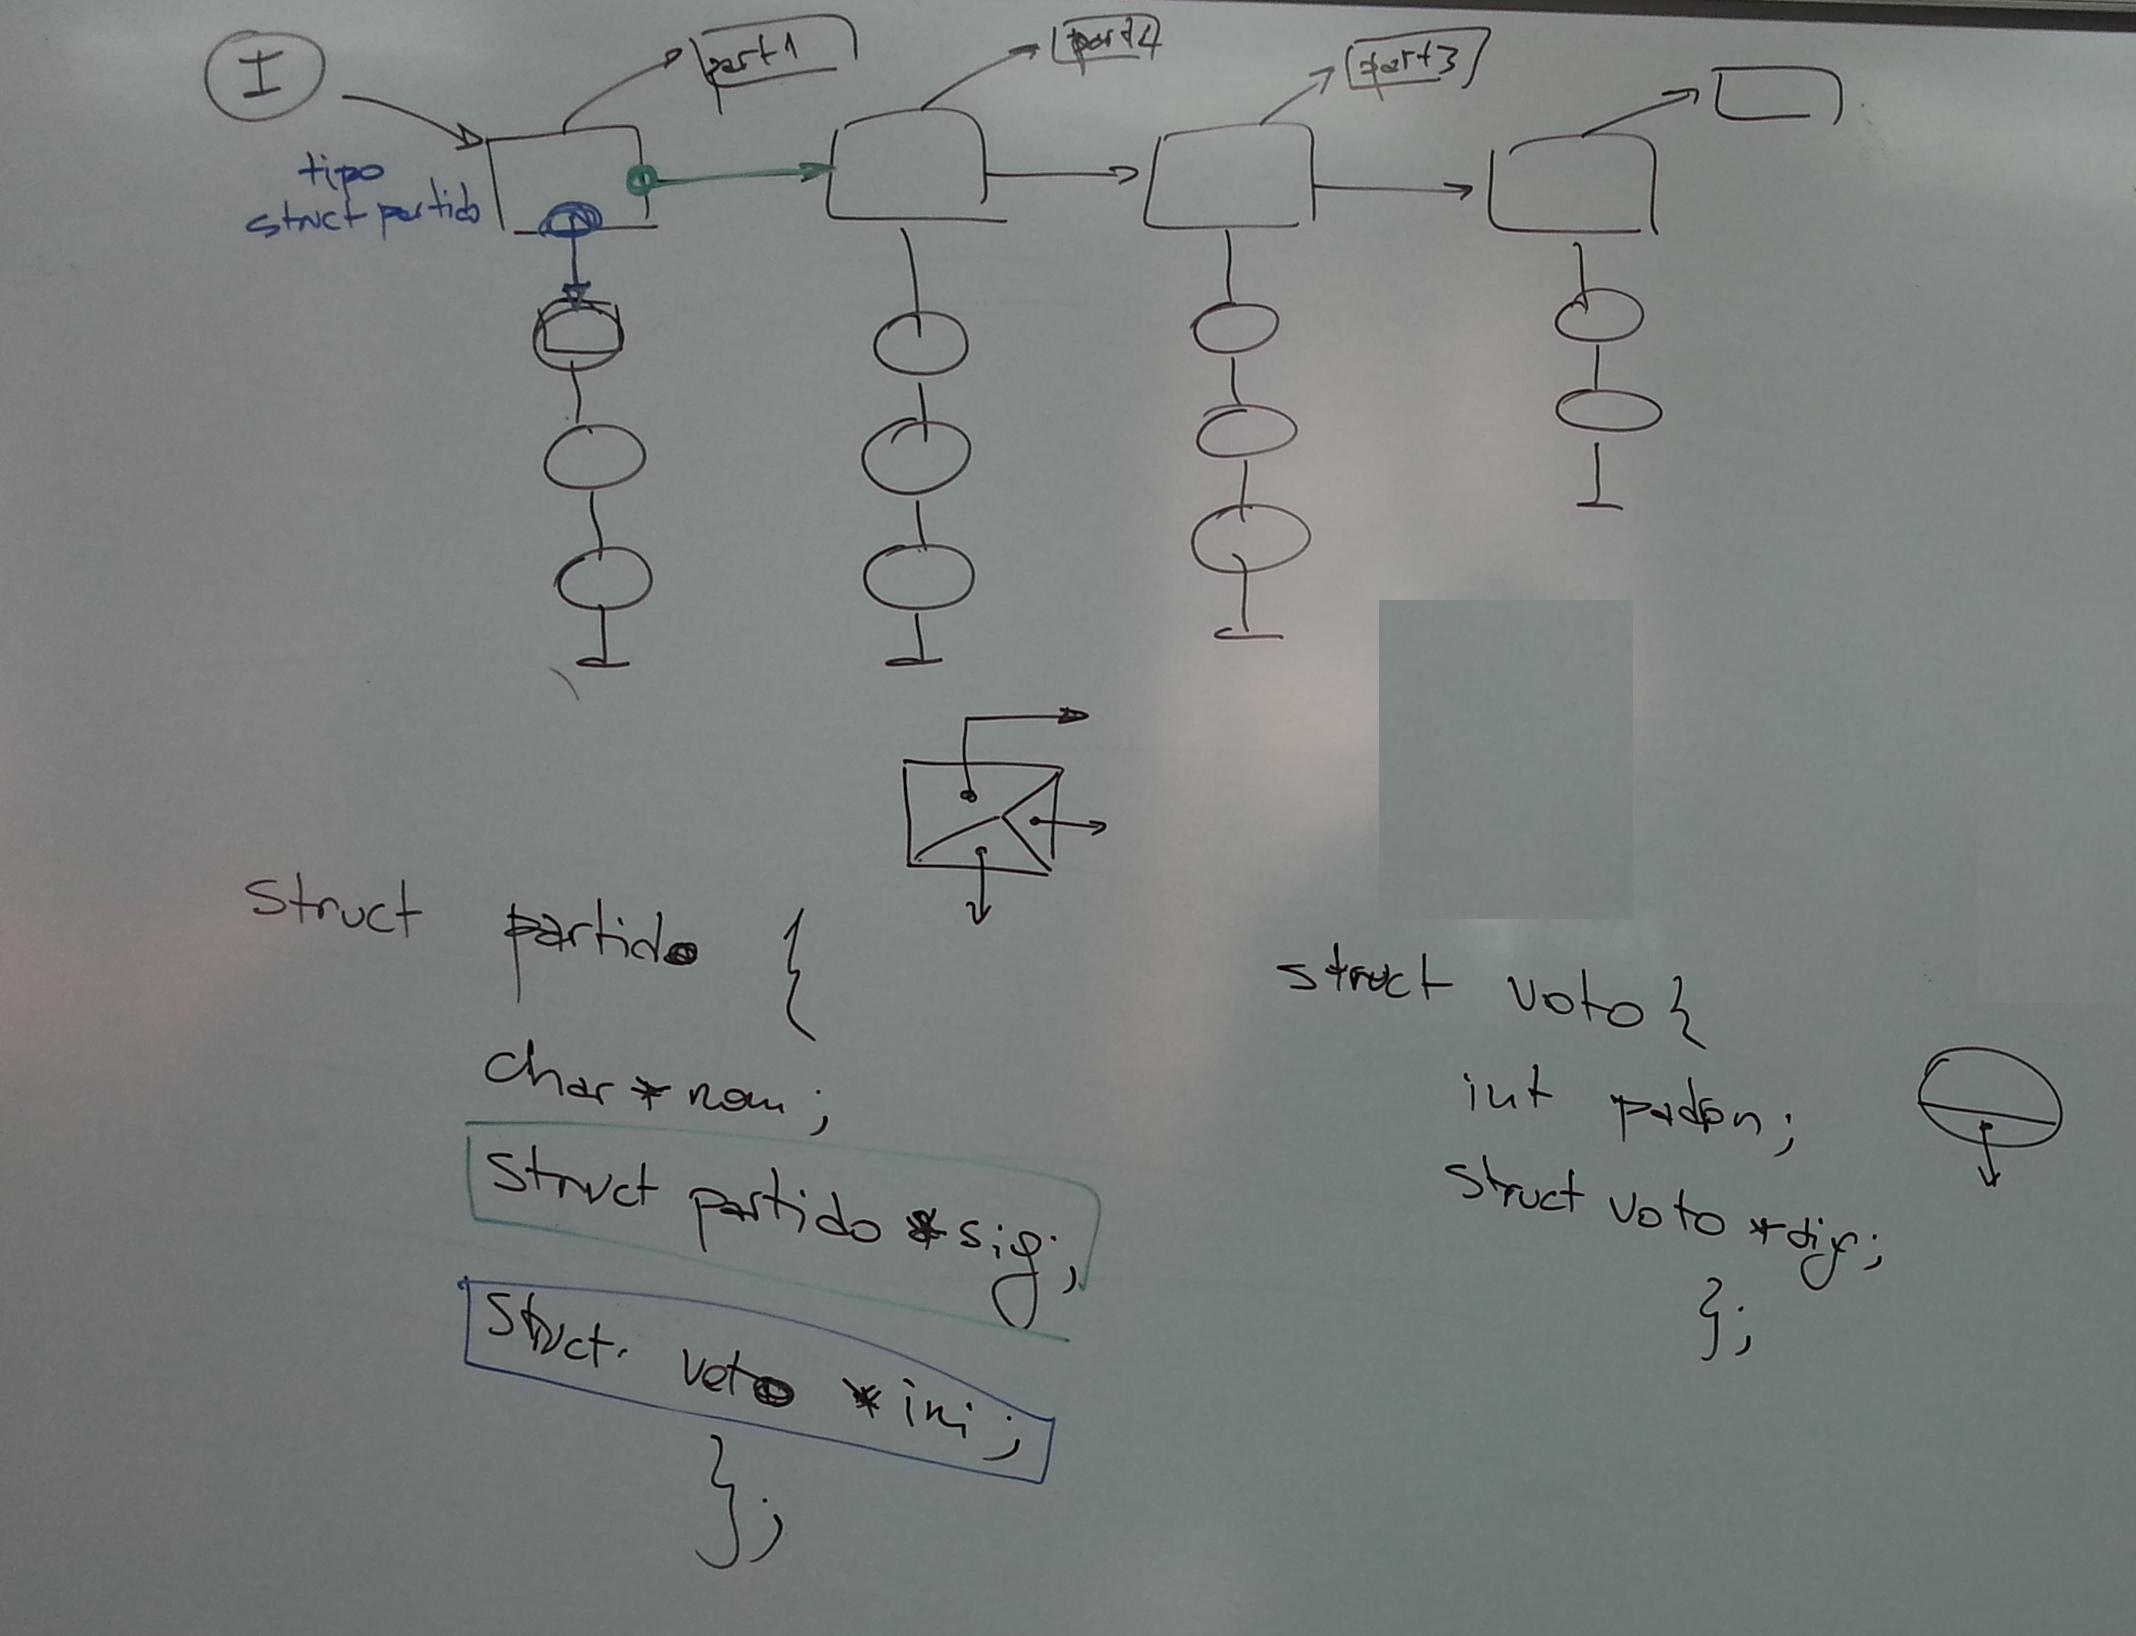 I
part1
part4
part3
tipo
struct partido
struct partido {
char * nom;
struct partido * sig;
struct voto * ini;
};
struct voto {
int padon;
struct voto * sig;
};